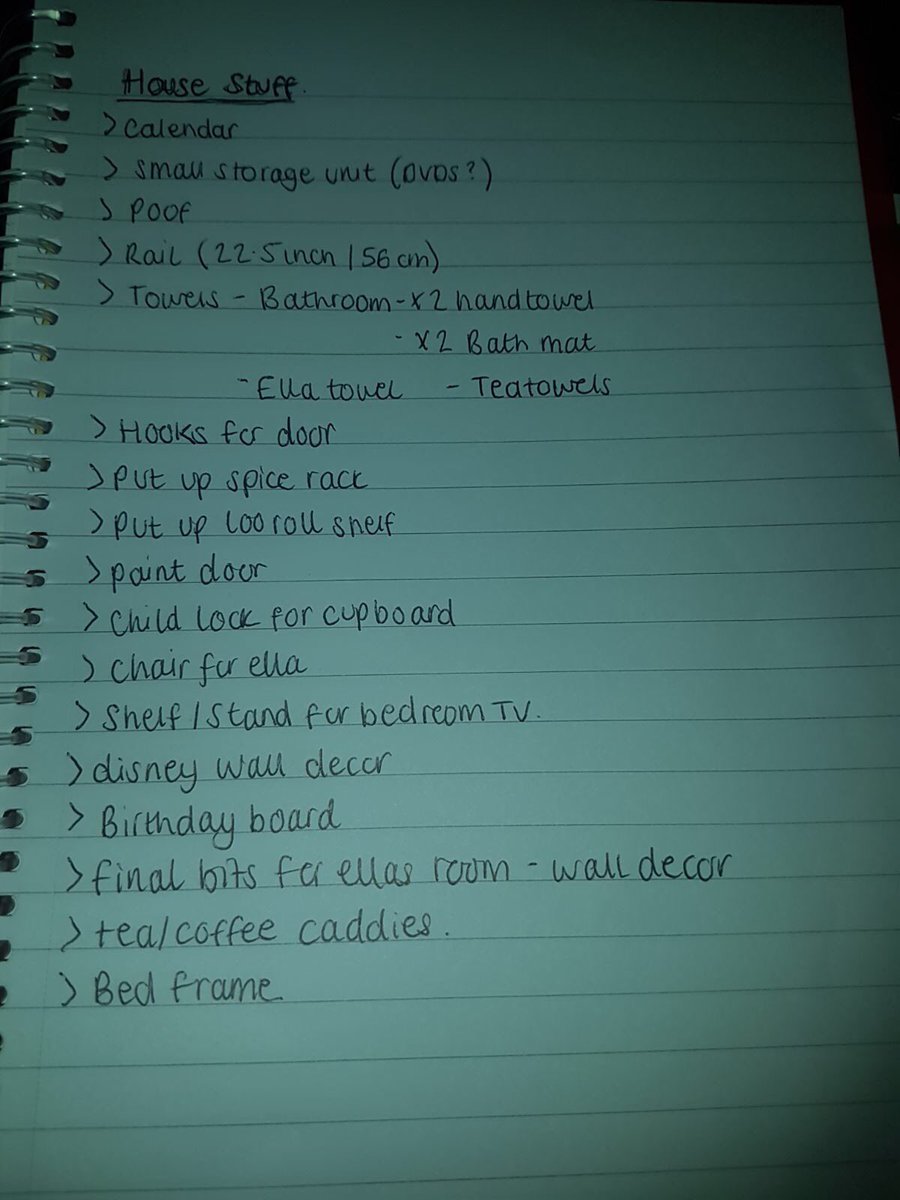 House Stuff.
> Calendar
> Small storage unit (DVDs?)
> Poof
> Rail (22.5 inch / 56 cm)
> Towels - Bathroom - x2 hand towel
- x2 Bath mat
- Ella towel - Teatowels
> Hooks for door
> Put up spice rack
> Put up loo roll shelf
> paint door
> Child lock for cupboard
> Chair for ella
> Shelf / Stand for bedroom TV.
> disney wall decor
> Birthday board
> final bits for ellas room - wall decor
> tea/coffee caddies.
> Bed frame